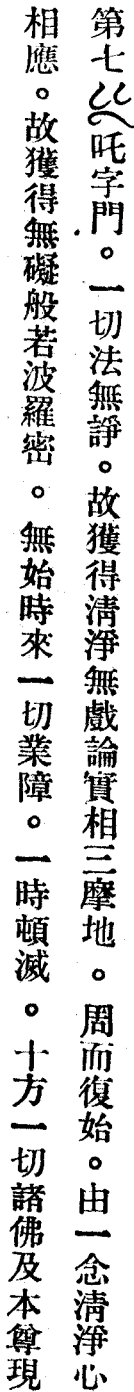 第七吒字門。一切法無諍。故獲得淸淨無戲論實相三摩地。周而復始。由一念淸淨心
相應。故獲得無礙般若波羅密。無始時來一切業障。一時頓滅。十方一切諸佛及本尊現